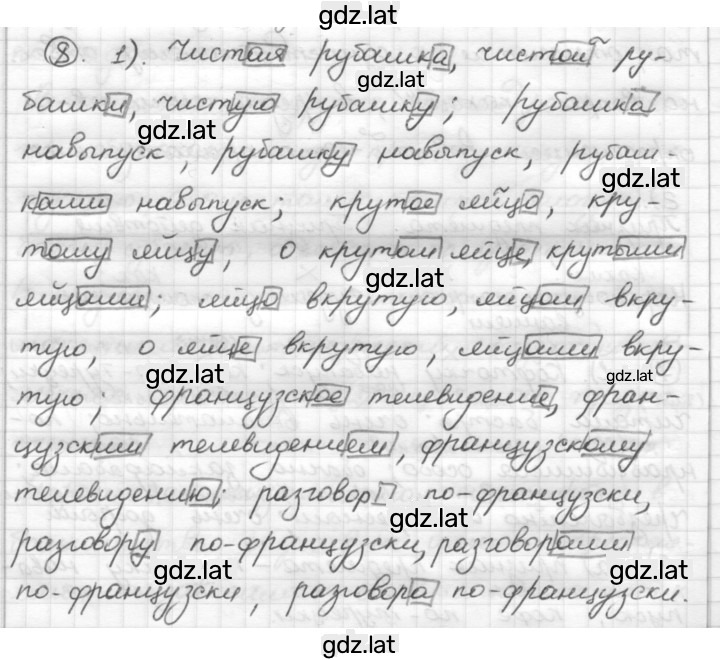 gdz.lat
8. 1). Чистая рубашка, чистой ру-
gdz.lat
башки, чистую рубашку; рубашка
gdz.lat
навыпуск, рубашку навыпуск, рубаш-
gdz.lat
ками навыпуск; крутое яйцо, кру-
тому яйцу, о крутом яйце, крутыми
gdz.lat
яйцами; яйцо вкрутую, яйцом вкру-
тую, о яйце вкрутую, яйцами вкру-
gdz.lat gdz.lat
тую; французское телевидение, фран-
цузским телевидением, французскому
телевидению; разговор по-французски,
gdz.lat
разговору по-французски, разговорами
gdz.lat gdz.lat
по-французски, разговора по-французски.
gdz.lat